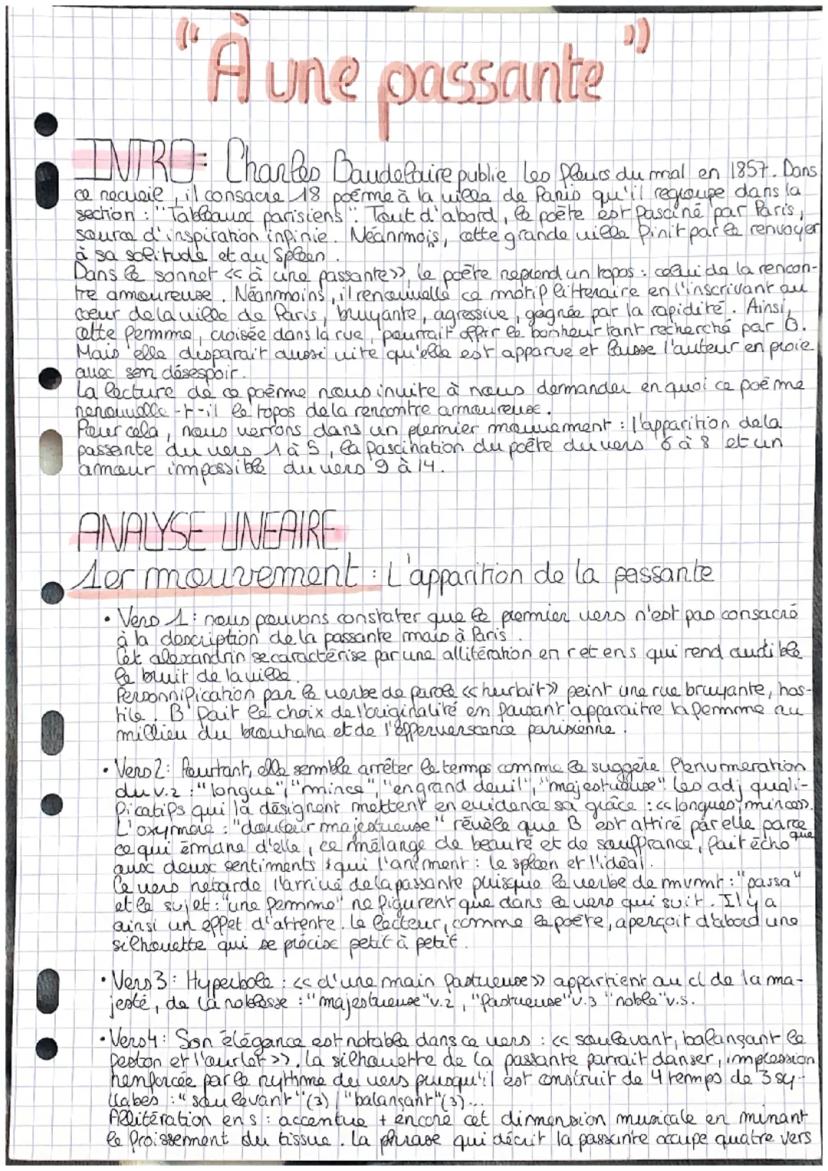 "À une passante"
INTRO: Charles Baudelaire publie les fleurs du mal en 1857. Dans
ce receuie, il consacre 18 poème à la ville de Paris qu'il regroupe dans la
section : "Tableaux parisiens". Tout d'abord, le poète est fasciné par Paris,
source d'inspiration infinie. Néanmois, cette grande ville finit par le renvoyer
à sa solitude et au Spleen.
Dans le sonnet << à une passante>>, le poète reprend un topos : celui de la rencon-
tre amoureuse. Néanmoins, il renouvelle ce motif litteraire en l'inscrivant au
coeur de la ville de Paris, bruyante, agressive, gagnée par la rapidité. Ainsi,
cette femme, croisée dans la rue, pourrait offrir le bonheur tant recherché par B.
Mais elle disparait aussi vite qu'elle est apparue et laisse l'auteur en proie
avec son désespoir.
La lecture de ce poème nous invite à nous demander en quoi ce poème
renouvelle-t-il le topos de la rencontre amoureuse.
Pour cela, nous verrons dans un premier mouvement : l'apparition de la
passante du vers 1 à 5, la fascination du poète du vers 6 à 8 et un
amour impossible du vers 9 à 14.
ANALYSE LINEAIRE
1er mouvement : L'apparition de la passante
• Vers 1 : nous pouvons constater que le premier vers n'est pas consacré
à la description de la passante mais à Paris.
Cet alexandrin se caractérise par une allitération en r et en s qui rend audible
le bruit de la ville.
Personnification par le verbe de parole <<hurlait>> peint une rue bruyante, hos-
tile. B fait le choix de l'originalité en faisant apparaitre la femme au
millieu du brouhaha et de l'effervescence parisienne.
• Vers 2 : Pourtant, elle semble arrêter le temps comme le suggère l'enumeration
du v.2 : "longue", "mince", "en grand deuil", "majestueuse". Les adj quali-
ficatifs qui la désignent mettent en evidence sa grâce : <<longues, minces>>.
L'oxymore : "douleur majestueuse" révèle que B est attiré par elle parce que
ce qui émane d'elle, ce mélange de beauté et de souffrance, fait écho
aux deux sentiments qui l'animent : le spleen et l'idéal.
Ce vers retarde l'arrivé de la passante puisque le verbe de mvmt : "passa"
et le sujet : "une femme" ne figurent que dans le vers qui suit. Il y a
ainsi un effet d'attente. Le lecteur, comme le poète, aperçoit d'abord une
silhouette qui se précise petit à petit.
• Vers 3 : Hyperbole : << d'une main fastueuse>> appartient au cl de la ma-
jesté, de la noblesse : "majestueuse" v.2, "fastueuse" v.3 "noble" v.5.
• Vers 4 : Son élégance est notable dans ce vers : << soulevant, balançant le
feston et l'ourlet>>. La silhouette de la passante parrait danser, impression
renforcée par le rythme du vers puisqu'il est construit de 4 temps de 3 sy-
llabes : "soulevant" (3) / "balançant" (3)...
Allitération en s : accentue + encore cet dimension musicale en mimant
le froissement du tissue. La phrase qui décrit la passante occupe quatre vers